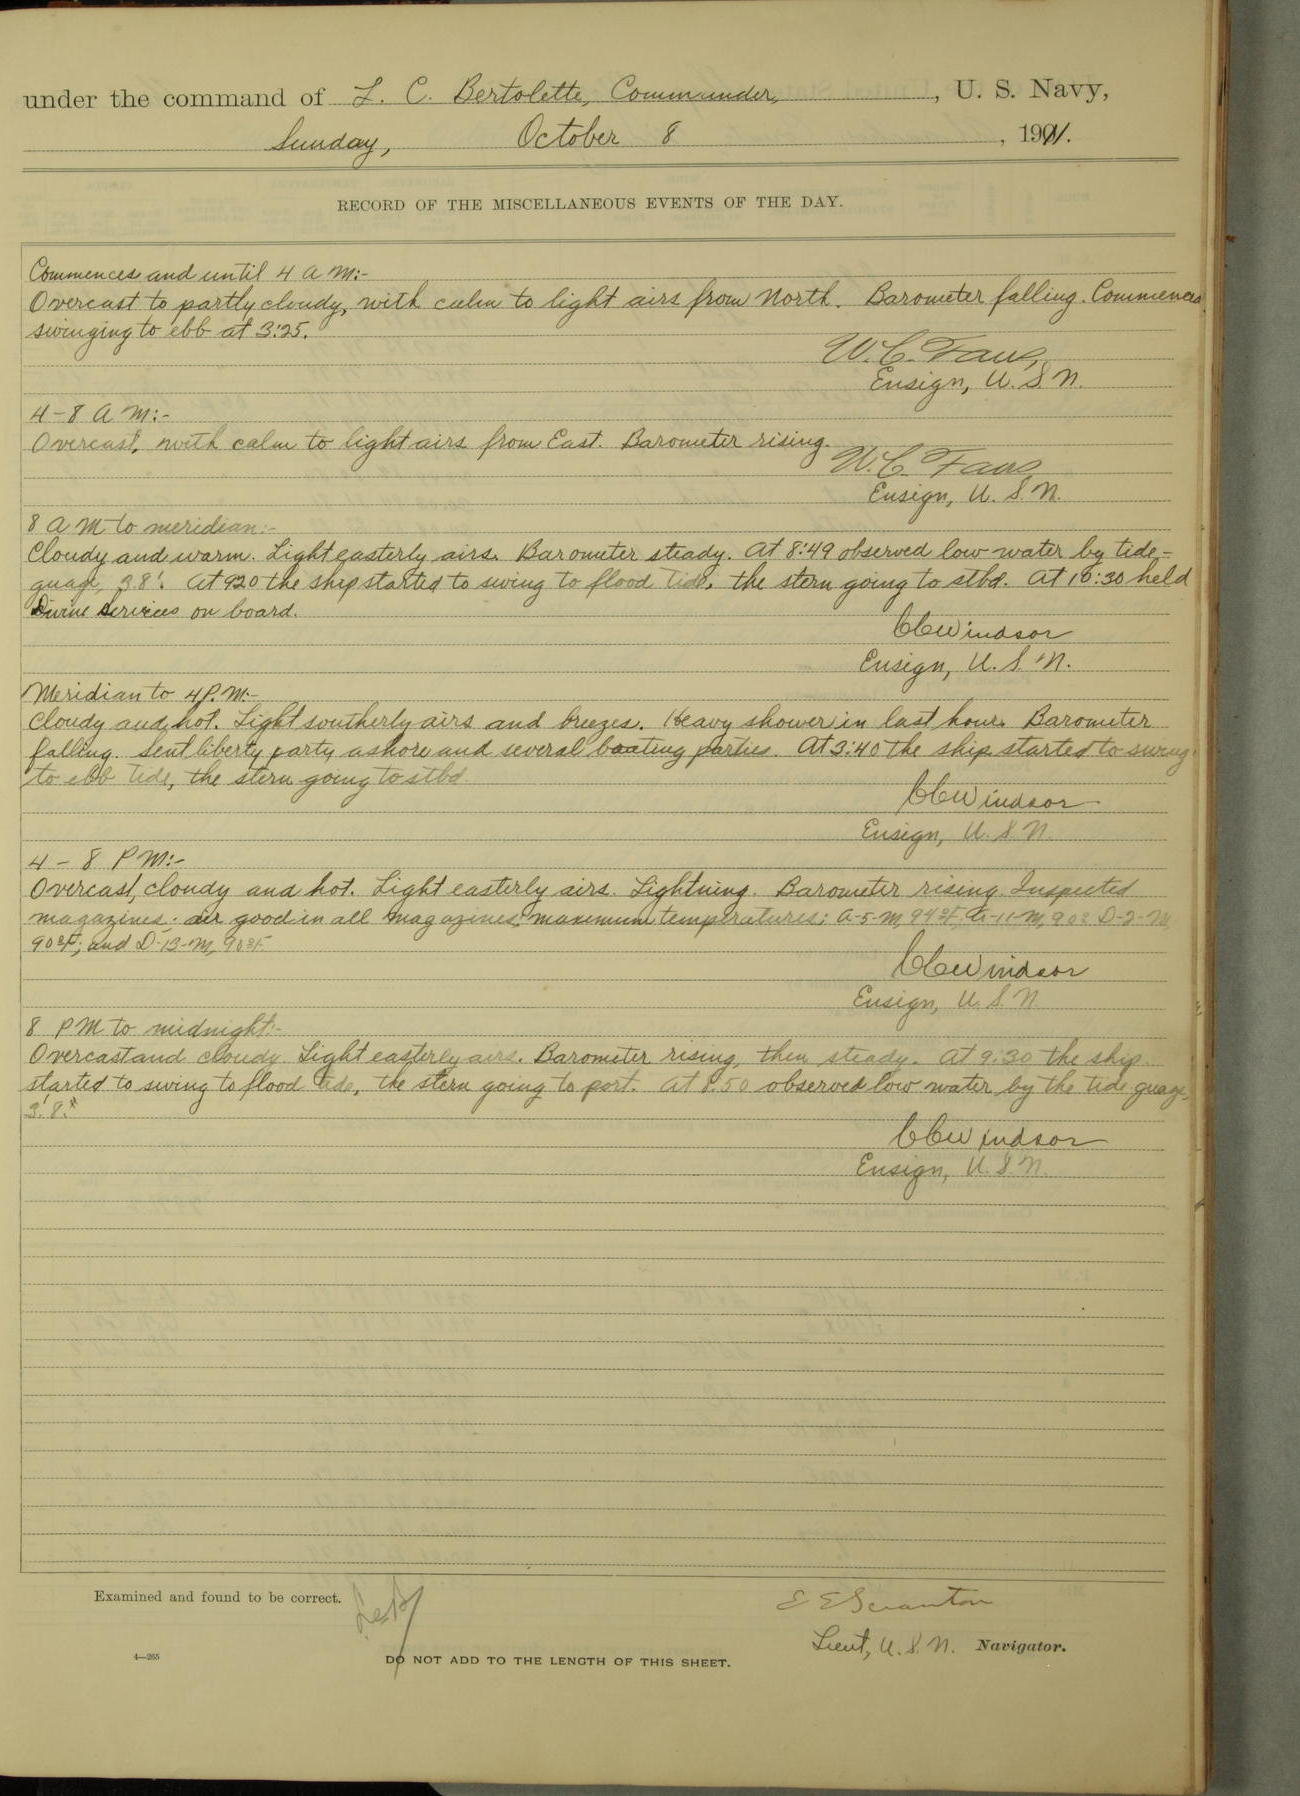 under the command of L. C. Bertolette, Commander, , U. S. Navy,
Sunday, October 8 , 1911.
RECORD OF THE MISCELLANEOUS EVENTS OF THE DAY.
Commences and until 4 A M:-
Overcast to partly cloudy, with calm to light airs from North. Barometer falling. Commenced
swinging to ebb at 3:25.
W. C. Faus,
Ensign, U. S. N.
4-8 A M:-
Overcast, with calm to light airs from East. Barometer rising.
W. C. Faus,
Ensign, U. S. N.
8 A M to meridian:-
Cloudy and warm. Light easterly airs. Barometer steady. At 8:49 observed low water by tide-
guage, 3.8'. At 920 the ship started to swing to flood tide, the stern going to stbd. At 10:30 held
Divine Services on board.
CCWindsor
Ensign, U. S. N.
Meridian to 4 P.M:-
Cloudy and hot. Light southerly airs and breezes. Heavy shower in last hour. Barometer
falling. Sent liberty party ashore and several boating parties. At 3:40 the ship started to swing
to ebb tide, the stern going to stbd.
CCWindsor
Ensign, U. S. N.
4 - 8 P M:-
Overcast, cloudy and hot. Light easterly airs. Lightning. Barometer rising. Inspected
magazines; air good in all magazines; maximum temperatures: A-5-M, 94°F; A-11-M, 90°; D-2-M,
90°F; and D-13-M, 90°F.
CCWindsor
Ensign, U. S. N.
8 P M to midnight:-
Overcast and cloudy. Light easterly airs. Barometer rising, then steady. At 9:30 the ship
started to swing to flood tide, the stern going to port. At 8.50 observed low water by the tide guage,
3.'8."
CCWindsor
Ensign, U. S. N.
Examined and found to be correct. LCB E E Scranton
Lieut, U. S. N. Navigator.
4—265 DO NOT ADD TO THE LENGTH OF THIS SHEET.